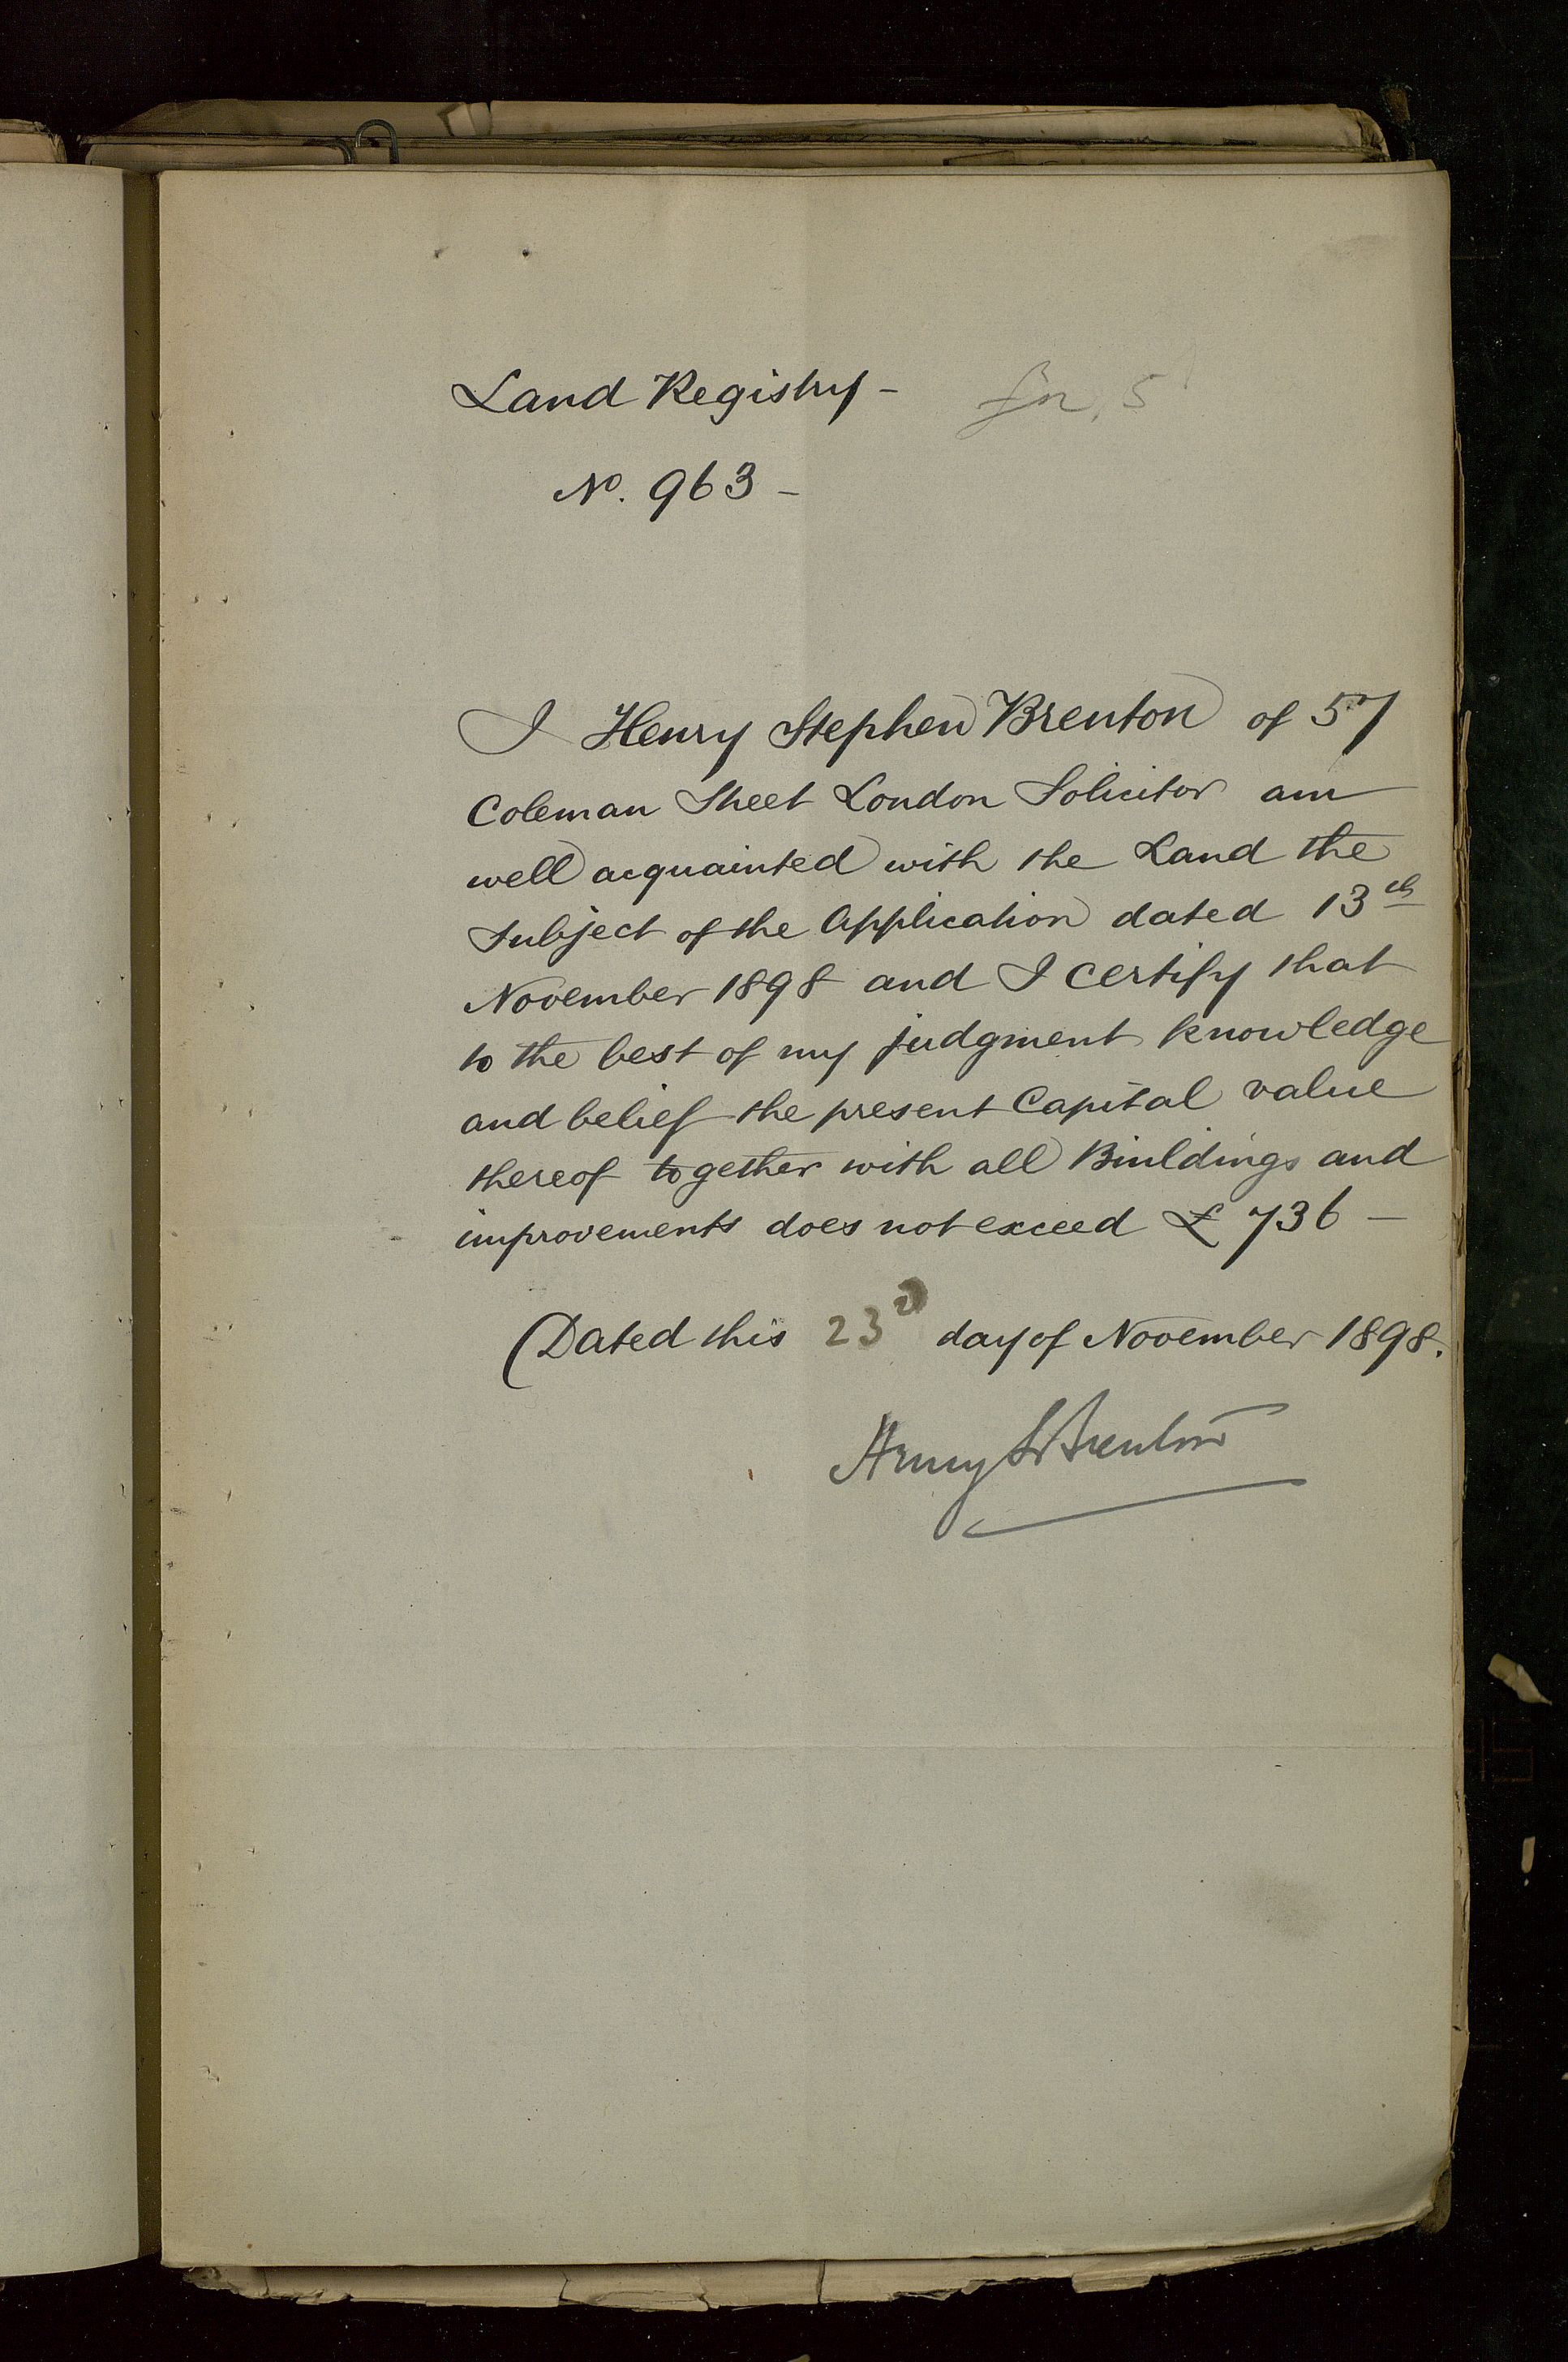 Land Registry -
No. 963 -
I Henry Stephen Brenton of 57
Coleman Street London Solicitor am
well acquainted with the Land the
Subject of the Application dated 13th
November 1898 and I certify that
to the best of my judgment knowledge
and belief the present Capital value
thereof together with all Buildings and
improvements does not exceed £736 -
Dated this 23d day of November 1898.
Henry S Brenton